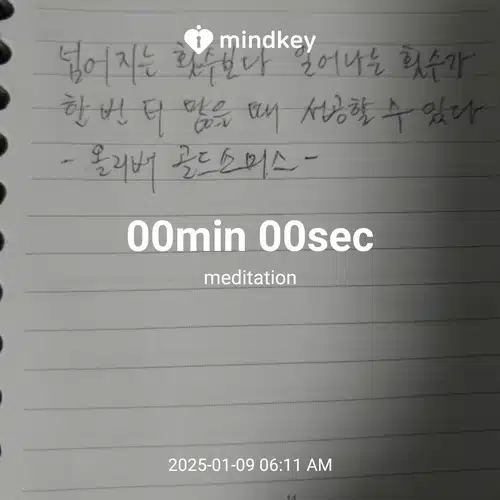 mindkey
넘어지는 횟수보다 일어나는 횟수가
한 번 더 많을 때 성공할 수 있다
- 올리버 골드스미스 -
00min 00sec
meditation
2025-01-09 06:11 AM